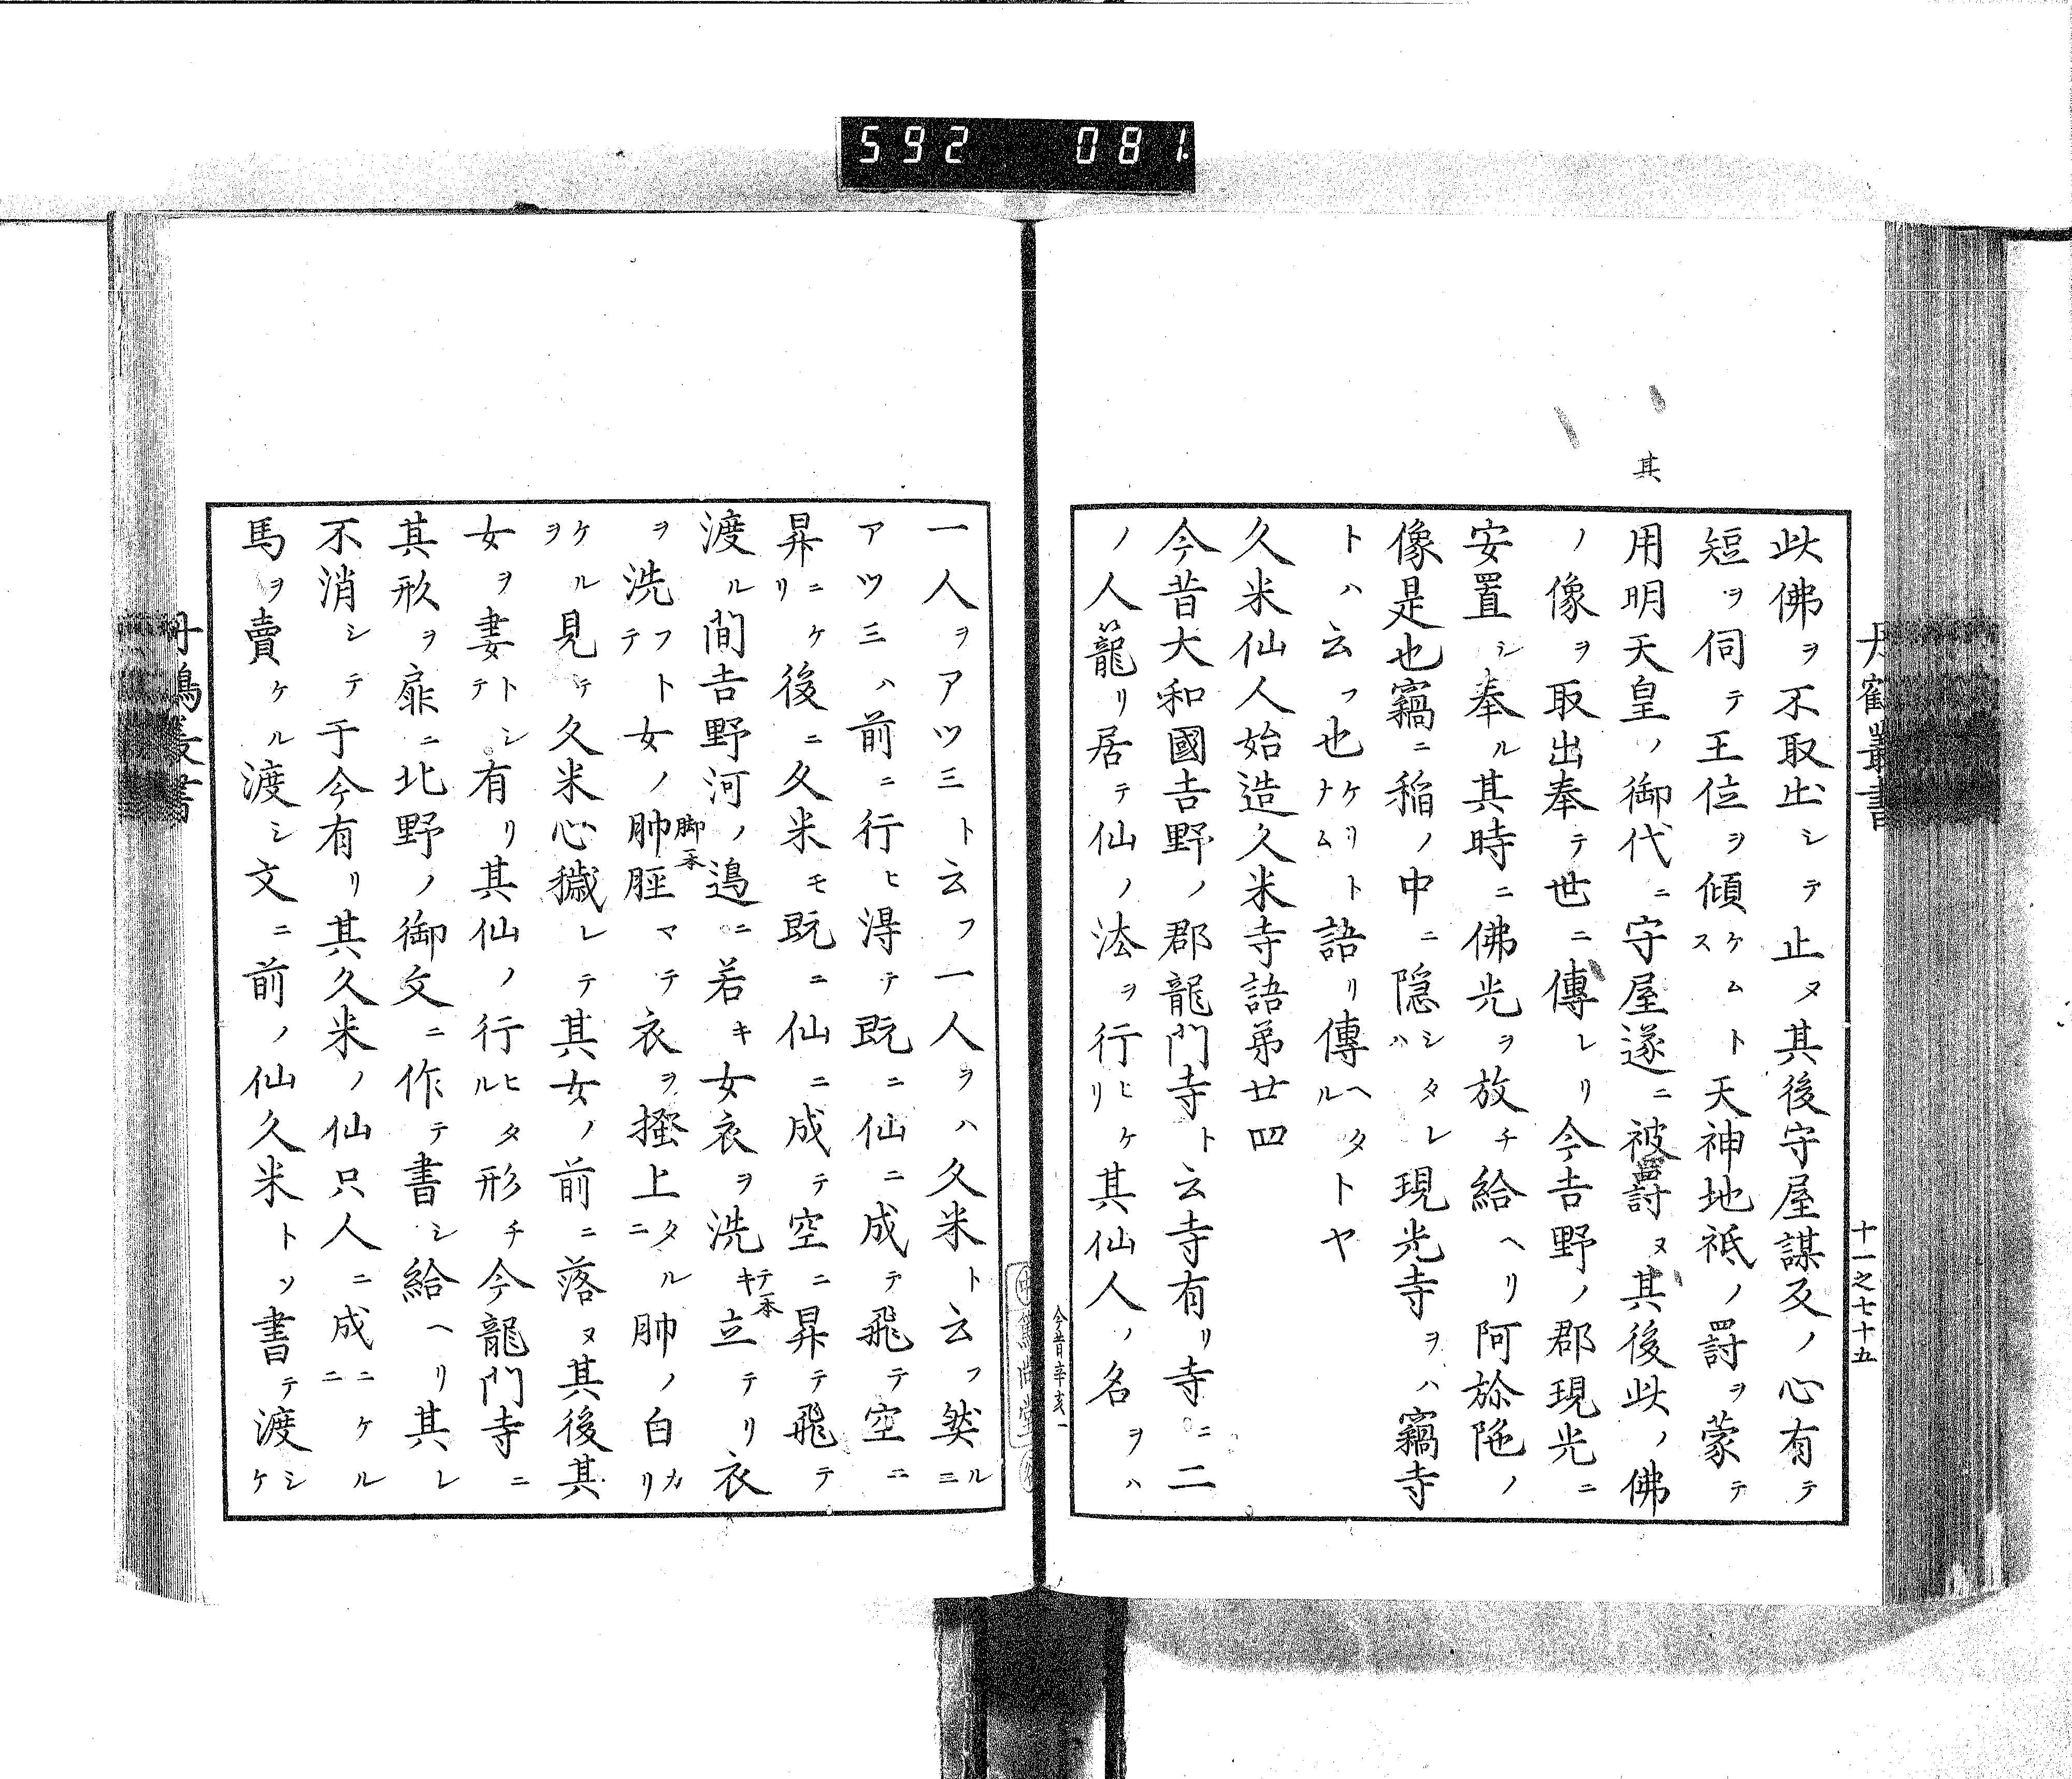 592 081
其
此佛ヲ不取出シテ止ヌ其後守屋謀反ノ心有テ
短ヲ伺テ王位ヲ傾ケムトス天神地祇ノ罸ヲ蒙テ
用明天皇ノ御代ニ守屋遂ニ被罸ヌ其後此ノ佛
ノ像ヲ取出奉テ世ニ傳レリ今吉野ノ郡現光ニ
安置シ奉ル其時ニ佛光ヲ放チ給ヘリ阿弥陁ノ
像是也竊ニ稲ノ中ニ隠シタレハ現光寺ヲハ竊寺
トハ云フ也ケリトナム語リ傳ヘタルトヤ
久米仙人始造久米寺語弟廿四
今昔大和國吉野ノ郡龍門寺ト云寺有リ寺ニ二
ノ人籠リ居テ仙ノ法ヲ行ヒケリ其仙人ノ名ヲハ
十一之七十五
今昔辛亥一
一人ヲアツミト云フ一人ヲハ久米ト云フ然ルニ
アツミハ前ニ行ヒ得テ既ニ仙ニ成テ飛テ空ニ
昇ニケリ後ニ久米モ既ニ仙ニ成テ空ニ昇テ飛テ
渡ル間吉野河ノ邊ニ若キ女衣ヲ洗テ立テリ衣
キ一本
ヲ洗フトテ女ノ䏶脛マテ衣ヲ搔上タルニ䏶ノ白カリ
脚一本
ケルヲ見テ久米心穢レテ其女ノ前ニ落ヌ其後其
女ヲ妻トシテ有リ其仙ノ行ヒタル形チ今龍門寺ニ
其形ヲ扉ニ北野ノ御文ニ作テ書シ給ヘリ其レ
不消シテ于今有リ其久米ノ仙只人ニ成ニケルニ
馬ヲ賣ケル渡シ文ニ前ノ仙久米トソ書テ渡シケ